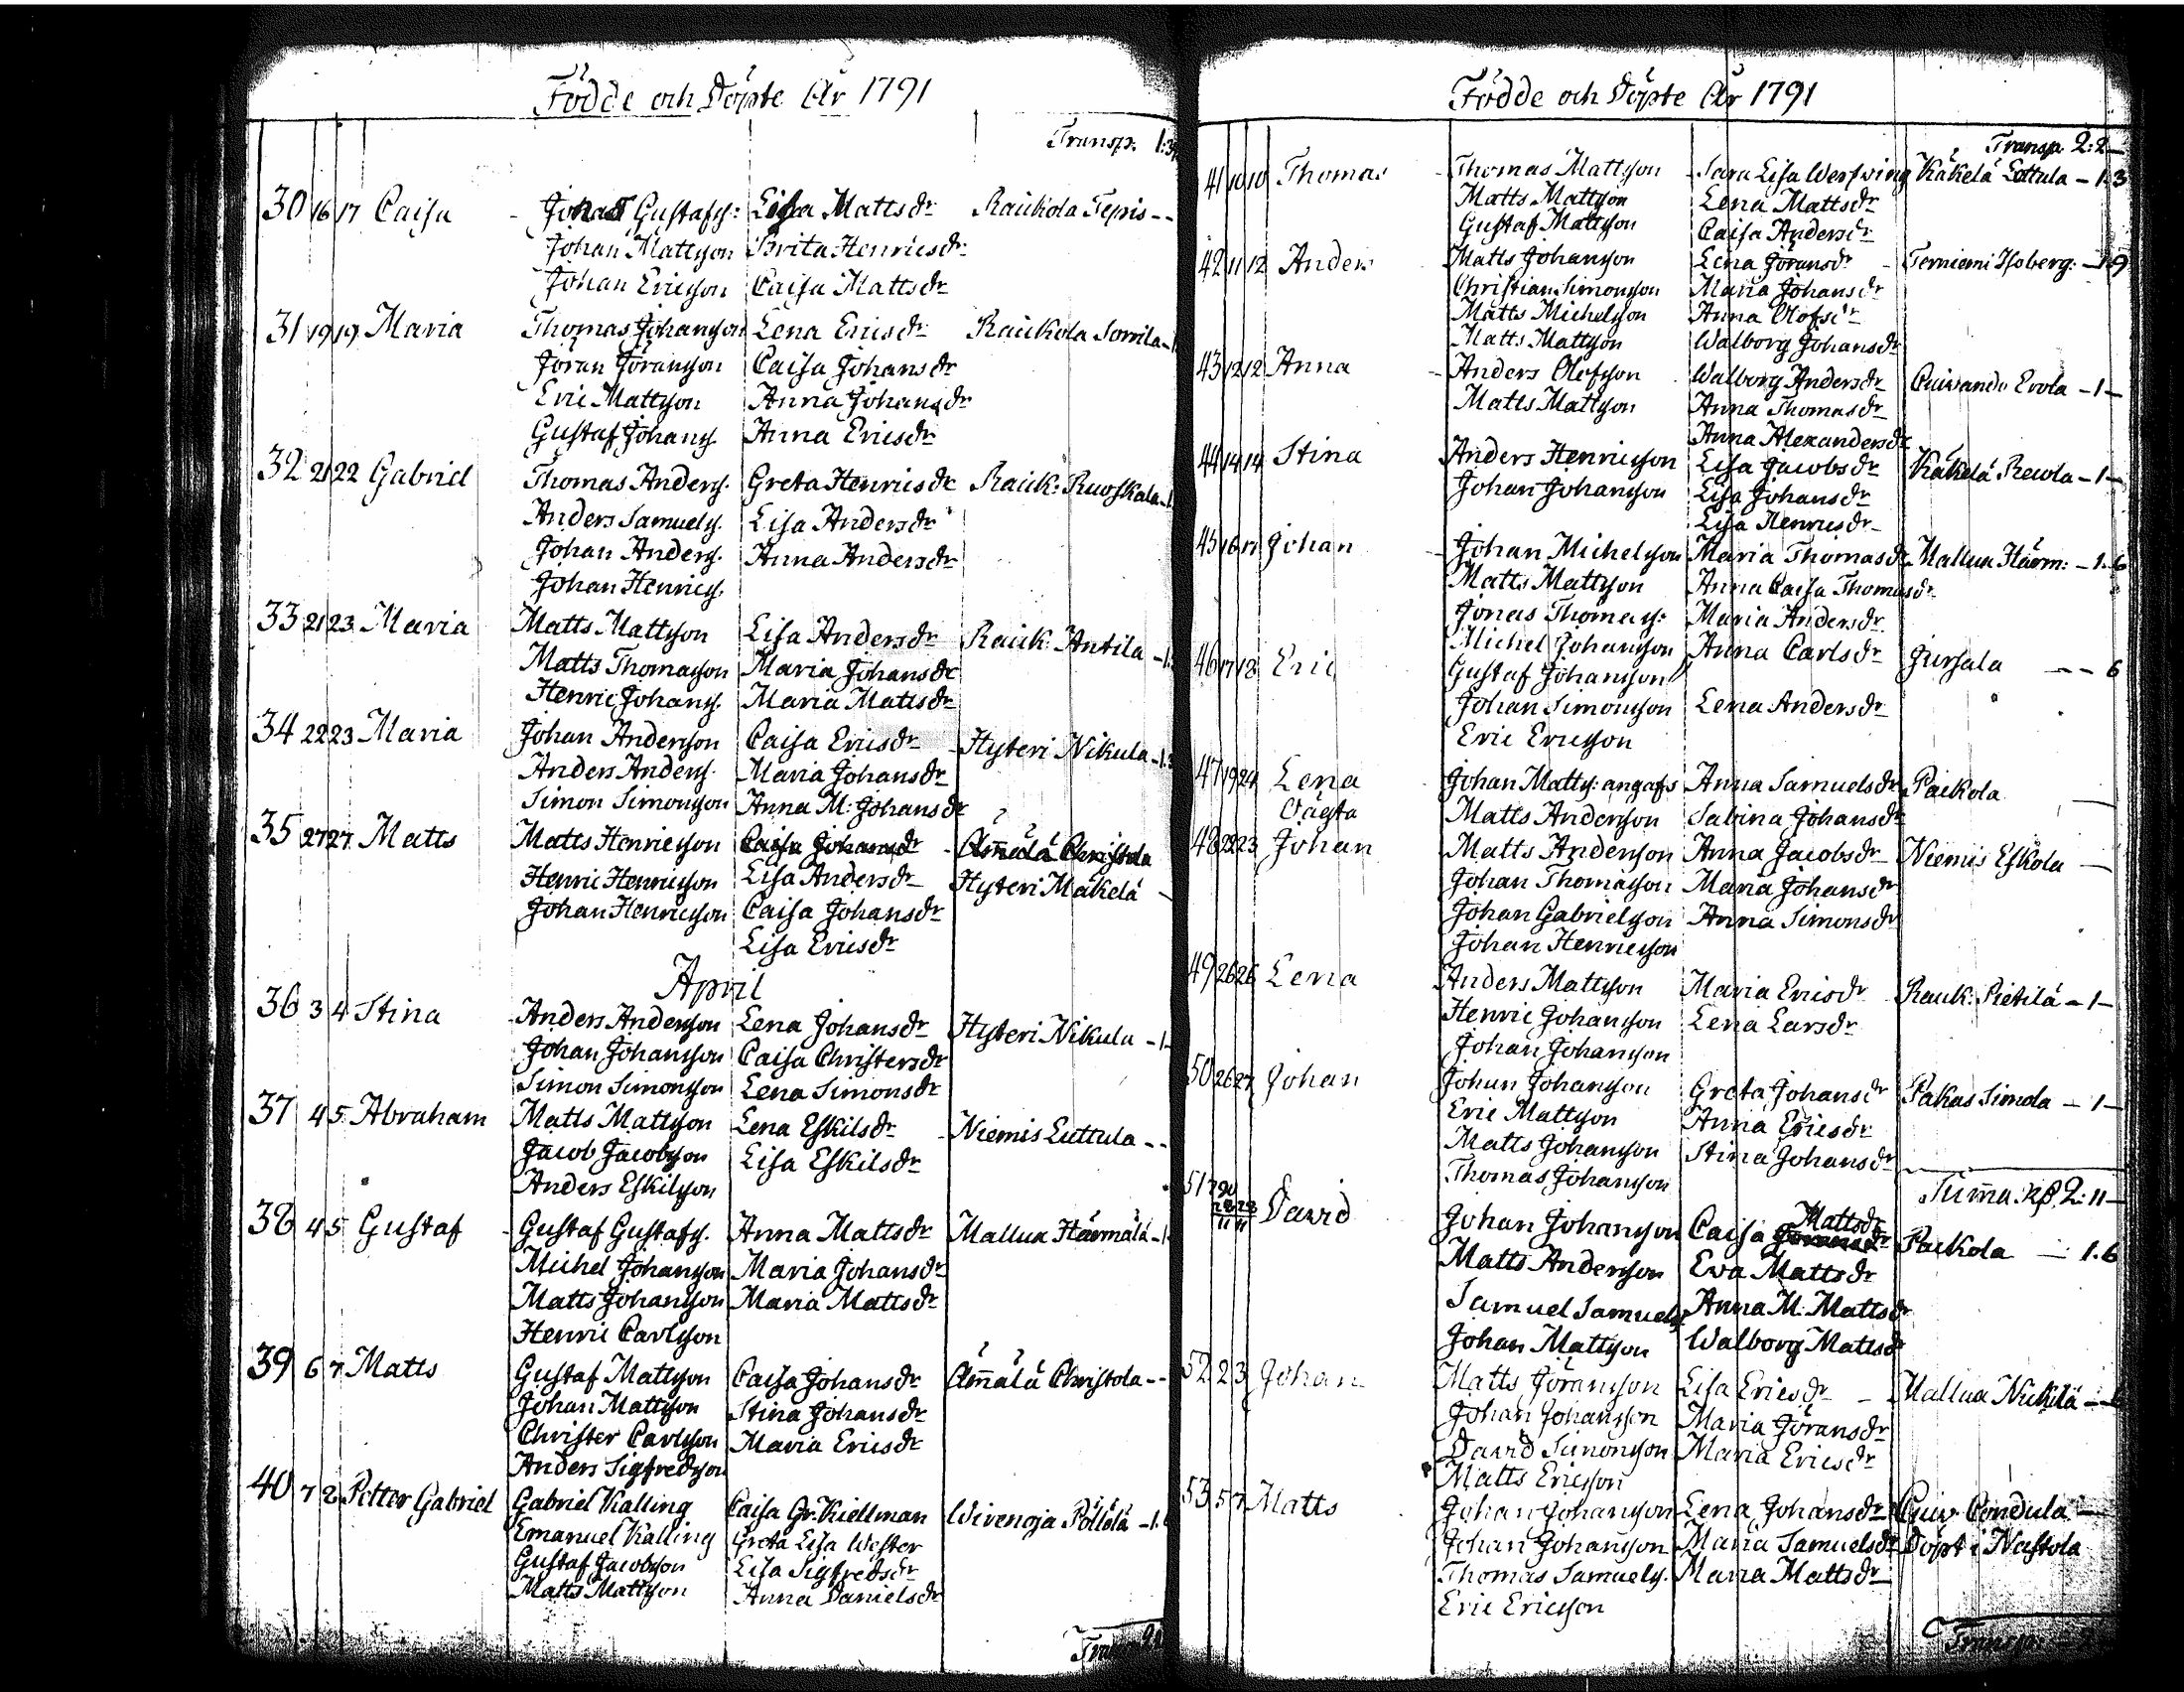 Födde och Döpte År 1791
Transp. 1:3
30 16 17 Caisa - Gustafs: Lisa Mattsdr Raukola Tepis --
Johan Mattsson Brita Henricsdr
Johan Ericsson Caisa Mattsdr
31 19 19 Maria Thomas Johansson Lena Ericsdr Raukola Sorrila - 1
Jöran Göransson Caisa Johansdr
Eric Mattsson Anna Johansdr
Gustaf Johans. Anna Ericsdr
32 21 22 Gabriel Thomas Anders. Greta Henricsdr Rauk: Ruoskala - 1
Anders Samuels. Lisa Andersdr
Johan Anders. Anna Andersdr
Johan Henrics.
33 21 23 Maria Matts Mattsson Lisa Andersdr Rauk: Antila - 1
Matts Thomasson Maria Johansdr
Henric Johans. Maria Mattsdr
34 22 23 Maria Johan Andersson Caisa Ericsdr - Hyteri Nikula - 1.3
Anders Anders. Maria Johansdr
Simon Simonsson Anna M: Johansdr
35 27 27 Matts Matts Henricsson Caisa Johansdr - Ämälä Christola
Henric Henricsson Lisa Andersdr Hyteri Mäkelä -
Johan Henricsson Caisa Johansdr
Lisa Ericsdr
April
36 3 4 Stina Anders Andersson Lena Johansdr Hyteri Nikula - 1 -
Johan Johansson Caisa Christersdr
Simon Simonsson Lena Simonsdr
37 4 5 Abraham Matts Mattsson Lena Eskilsdr - Niemis Luttula --
Jacob Jacobsson Lisa Eskilsdr
Anders Eskilsson
38 4 5 Gustaf - Gustaf Gustafs. Anna Mattsdr Mallua Härmälä - 1
Michel Johansson Maria Johansdr
Matts Johansson Maria Mattsdr
Henric Carlsson
39 6 7 Matts Gustaf Mattsson Caisa Johansdr Ämälä Christola --
Johan Mattsson Stina Johansdr
Christer Carlsson Maria Ericsdr
Anders Sigfredsson
40 7 8 Petter Gabriel Gabriel Kalling Caisa Gr. Kiellman Wirenoja Pöllölä - 1.
Emanuel Kalling Greta Lisa Wester
Gustaf Jacobsson Lisa Sigfredsdr
Matts Mattsson Anna Danielsdr
Födde och Döpte År 1791
Transp. 2:2 -
41 10 10 Thomas - Thomas Mattsson Sara Lisa Werfwing Käkelä Lottula - 1.3
Matts Mattsson Lena Mattsdr
Gustaf Mattsson Caisa Andersdr
42 11 12 Anders Matts Johansson Lena Göransdr - Terniemi Isoberg: - 1.9
Christian Simonsson Maria Johansdr
Matts Michelsson Anna Olofsdr
Matts Mattsson Walborg Johansdr
43 12 12 Anna - Anders Olofsson Walborg Andersdr Erola - 1 -
Matts Mattsson Anna Thomasdr
Anna Alexandersdr
44 14 14 Stina Anders Henricsson Lisa Jacobsdr Käkelä Rewola - 1 -
Johan Johansson Lisa Johansdr
Lisa Henricsdr
45 16 17 Johan - Johan Michelsson Maria Thomasdr Mallua Härm: - 1.6
Matts Mattsson Anna Caisa Thomasdr
Jonas Thomas: Maria Andersdr
46 17 18 Eric Michel Johansson Anna Carlsdr Jursala -- 6
Gustaf Johansson
Johan Simonsson Lena Andersdr
Eric Ericsson
47 19 24 Lena Johan Matts: angafs Anna Samuelsdr Paikola -
Oägta Matts Andersson Sabina Johansdr
48 22 23 Johan Matts Andersson Anna Jacobsdr Niemis Eskola -
Johan Thomasson Maria Johansdr
Johan Gabrielsson Anna Simonsdr
Johan Henricsson
49 26 26 Lena Anders Mattsson Maria Ericsdr Rauk: Pietilä - 1 -
Henric Johansson Lena Larsdr
Johan Johansson
50 26 27 Johan Johan Johansson Greta Johansdr Pakas Simola - 1 -
Eric Mattsson Anna Ericsdr
Matts Johansson Stina Johansdr
Thomas Johansson
Summa 2:11 -
51 1790 28/11 28/11 David Johan Johansson Caisa Mattsdr Paikola - 1.6
Matts Andersson Ewa Mattsdr
Samuel Samuels. Anna M: Mattsdr
Johan Mattsson Walborg Mattsdr
52 2 3 Johan Matts Jöransson Lisa Ericsdr - Mallua Nickilä -- 6
Johan Johansson Maria Göransdr
David Simonsson Maria Ericsdr
Matts Ericsson
53 5 7 Matts Johan Johansson Lena Johansdr Cuiv. Condula -
Johan Johansson Maria Samuelsdr Döpt i Nastola
Thomas Samuels. Maria Mattsdr
Eric Ericsson
Transp: